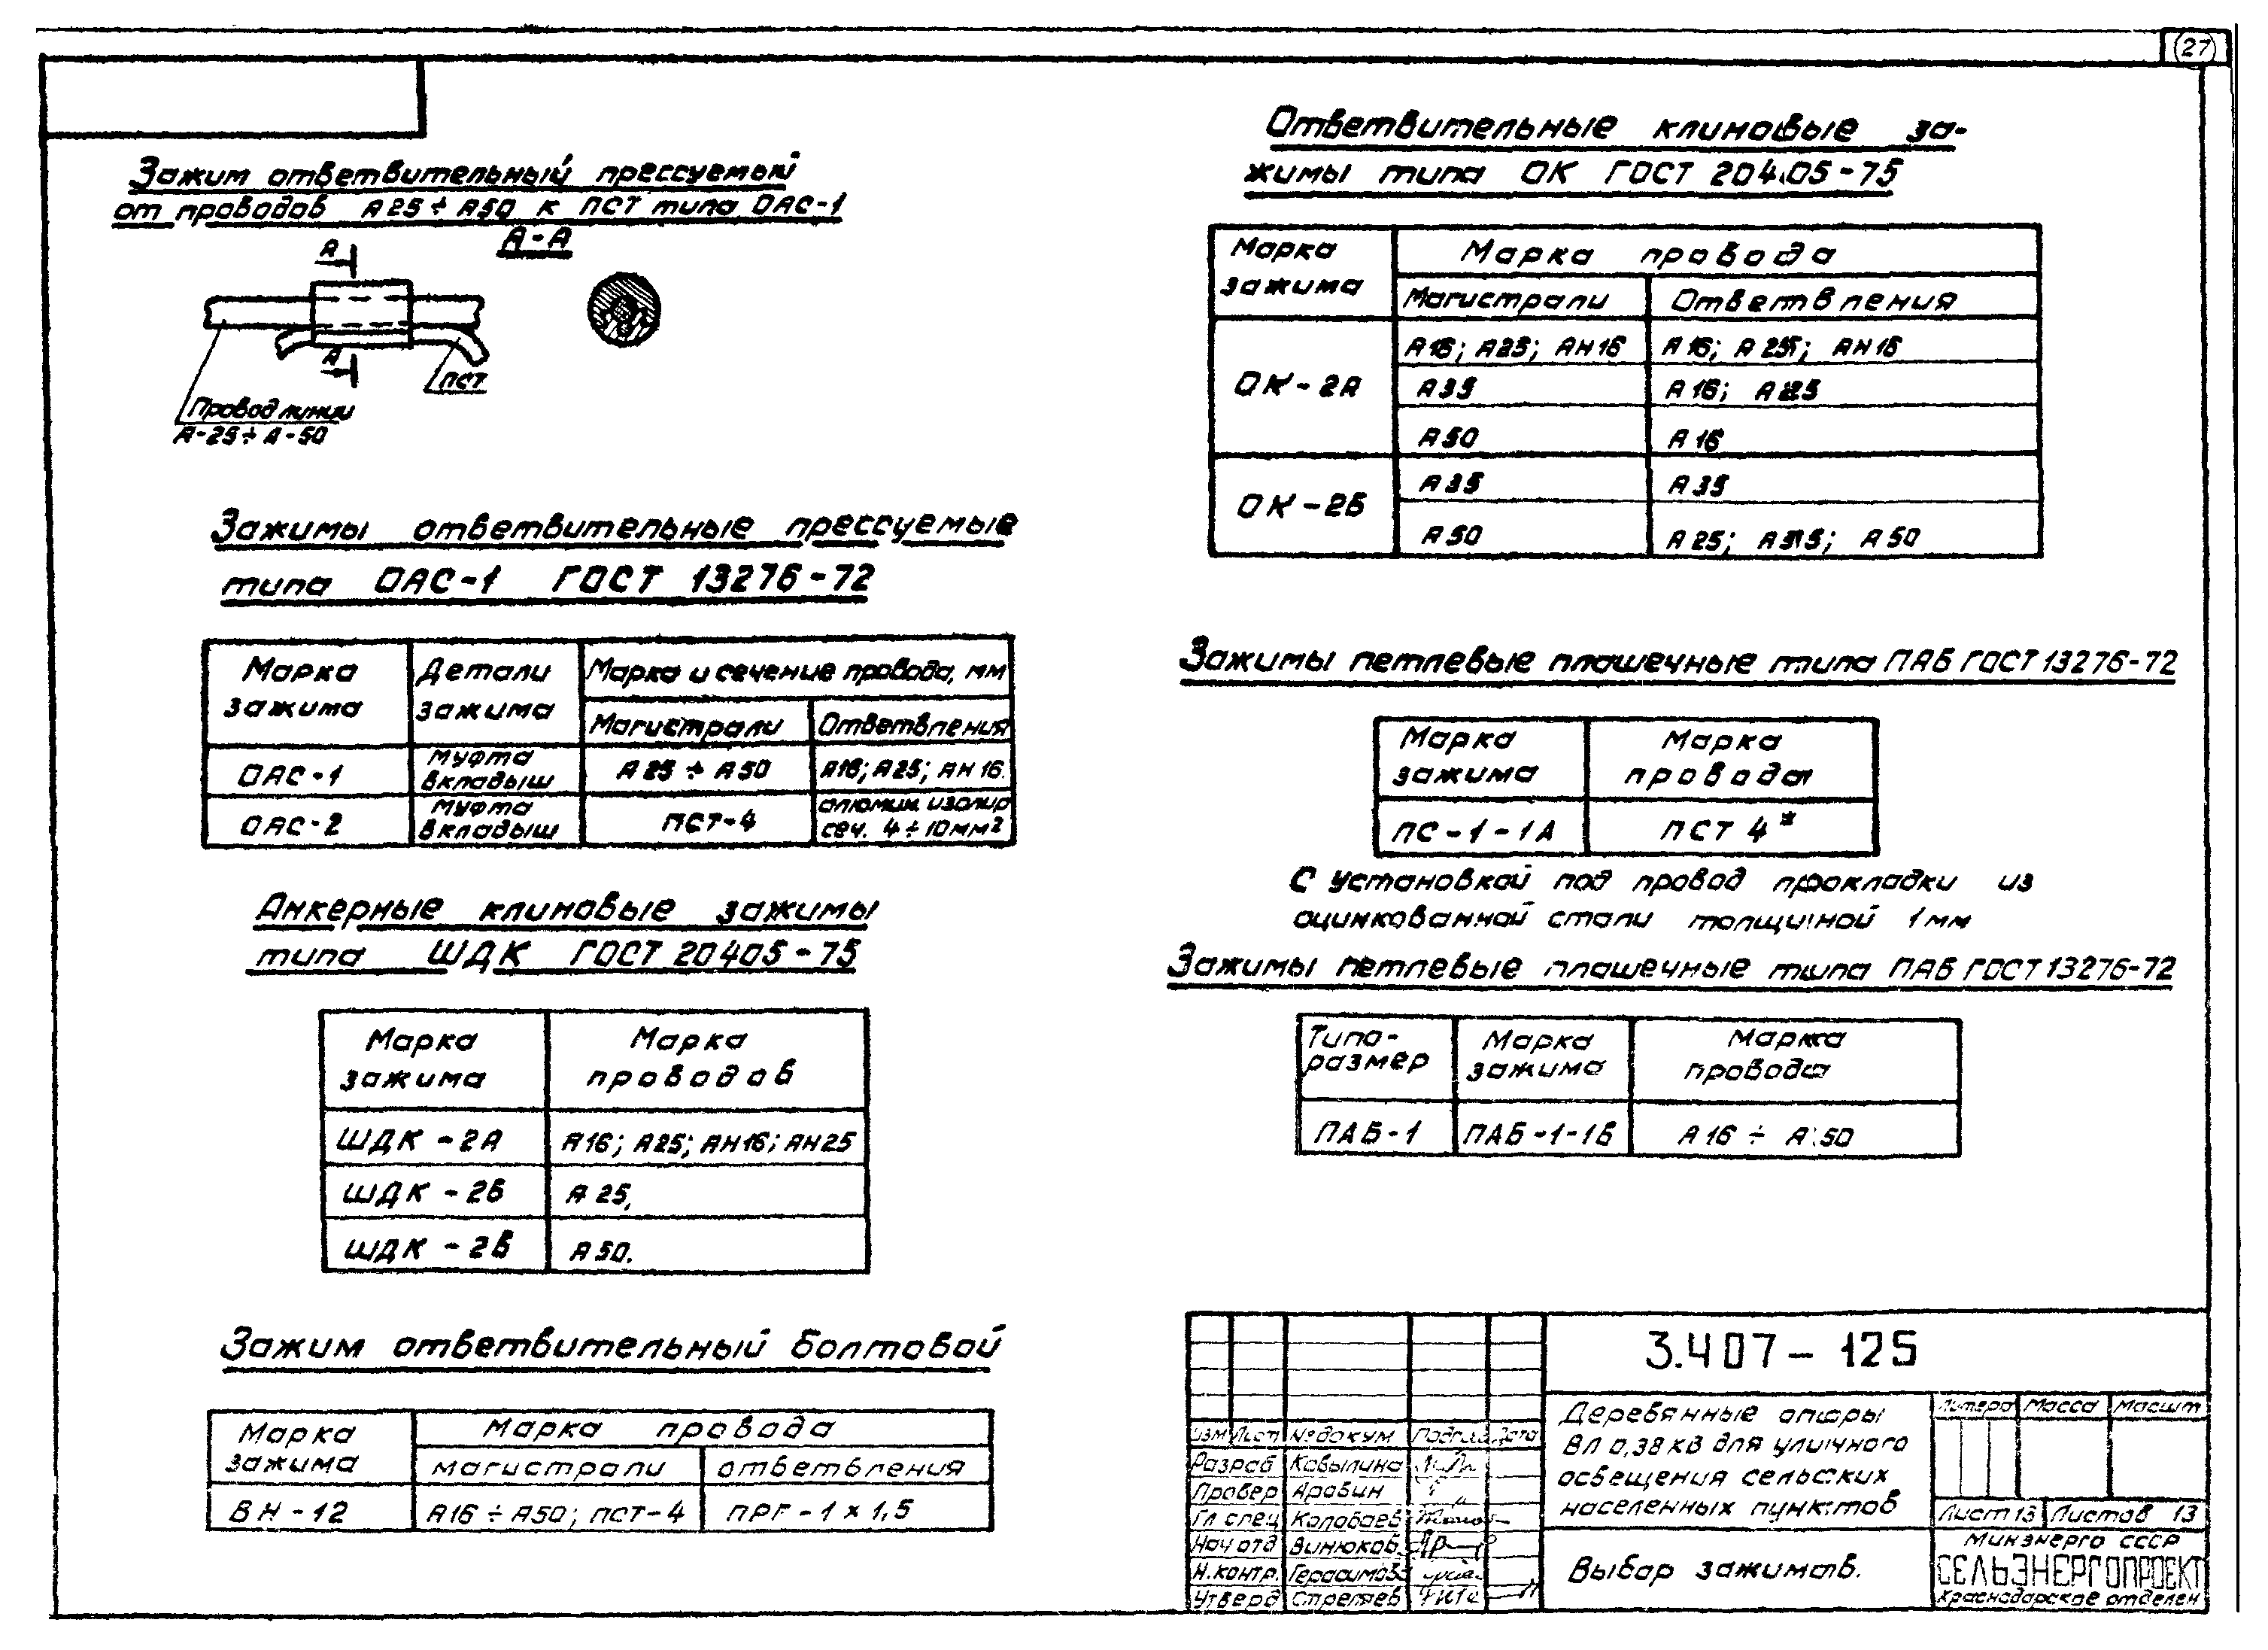 27
Зажим ответвительный прессуемый
от проводов А25÷А50 к ПСТ типа ОАС-1
А-А
А
А
ПСТ
Провод линии
А-25÷А-50
Зажимы ответвительные прессуемые
типа ОАС-1 ГОСТ 13276-72
Марка зажима
Детали зажима
Марка и сечение провода, мм
Магистрали
Ответвления
ОАС-1
Муфта вкладыш
А25÷А50
А16; А25; АН16.
ОАС-2
Муфта вкладыш
ПСТ-4
алюмин. изолир
сеч. 4÷10мм²
Анкерные клиновые зажимы
типа ШДК ГОСТ 20405-75
Марка зажима
Марка проводов
ШДК-2А
А16; А25; АН16; АН25
ШДК-2Б
А25,
ШДК-2В
А50.
Зажим ответвительный болтовой
Марка зажима
Марка провода
магистрали
ответвления
ВН-12
А16÷А50; пст-4
ПРГ-1×1,5
Ответвительные клиновые за-
жимы типа ОК ГОСТ 20405-75
Марка зажима
Марка провода
Магистрали
Ответвления
ОК-2А
А16; А25; АН16
А16; А25; АН16
А35
А16; А25
А50
А16
ОК-2Б
А35
А35
А50
А25; А35; А50
Зажимы петлевые плашечные типа ПАБ ГОСТ 13276-72
Марка зажима
Марка провода
ПС-1-1А
ПСТ 4*
С установкой под провод прокладки из
оцинкованной стали толщиной 1мм
Зажимы петлевые плашечные типа ПАБ ГОСТ 13276-72
Типо-
размер
Марка зажима
Марка провода
ПАБ-1
ПАБ-1-1Б
А16÷А50
3.407-125
Деревянные опоры
ВЛ 0,38 кВ для уличного
освещения сельских
населенных пунктов
Литера Масса Масшт
Лист 13 Листов 13
Выбор зажимов.
Минэнерго СССР
СЕЛЬЭНЕРГОПРОЕКТ
Краснодарское отделен
Изм Лист № докум Подпись Дата
Разраб Ковылина
Провер Аровин
Гл спец Колобаев
Нач отд Винюков
Н.контр. Герасимова
Утверд Стреляев